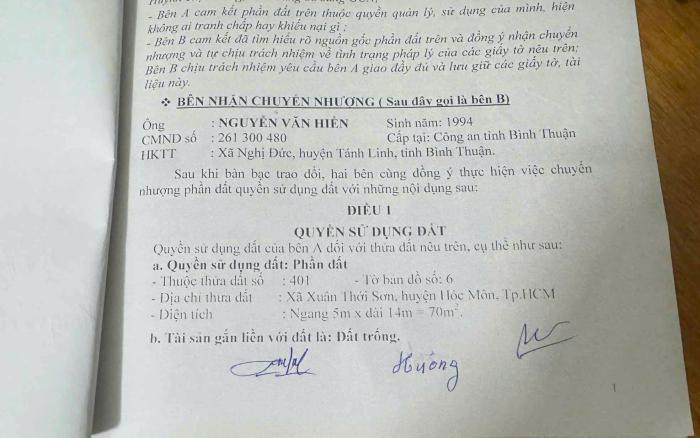 - Bên A cam kết phần đất trên thuộc quyền quản lý, sử dụng của mình, hiện
không ai tranh chấp hay khiếu nại gì ;
- Bên B cam kết đã tìm hiểu rõ nguồn gốc phần đất trên và đồng ý nhận chuyển
nhượng và tự chịu trách nhiệm về tình trạng pháp lý của các giấy tờ nêu trên;
Bên B chịu trách nhiệm yêu cầu bên A giao đầy đủ và lưu giữ các giấy tờ, tài
liệu này.
❖ BÊN NHẬN CHUYỂN NHƯỢNG ( Sau đây gọi là bên B)
Ông : NGUYỄN VĂN HIỀN Sinh năm: 1994
CMND số : 261 300 480 Cấp tại: Công an tỉnh Bình Thuận
HKTT : Xã Nghị Đức, huyện Tánh Linh, tỉnh Bình Thuận.
Sau khi bàn bạc trao đổi, hai bên cùng đồng ý thực hiện việc chuyển
nhượng phần đất quyền sử dụng đất với những nội dung sau:
ĐIỀU 1
QUYỀN SỬ DỤNG ĐẤT
Quyền sử dụng đất của bên A đối với thửa đất nêu trên, cụ thể như sau:
a. Quyền sử dụng đất: Phần đất
- Thuộc thửa đất số : 401 - Tờ bản đồ số: 6
- Địa chỉ thửa đất : Xã Xuân Thới Sơn, huyện Hóc Môn, Tp.HCM
- Diện tích : Ngang 5m x dài 14m = 70m².
b. Tài sản gắn liền với đất là: Đất trống.
Hướng
1